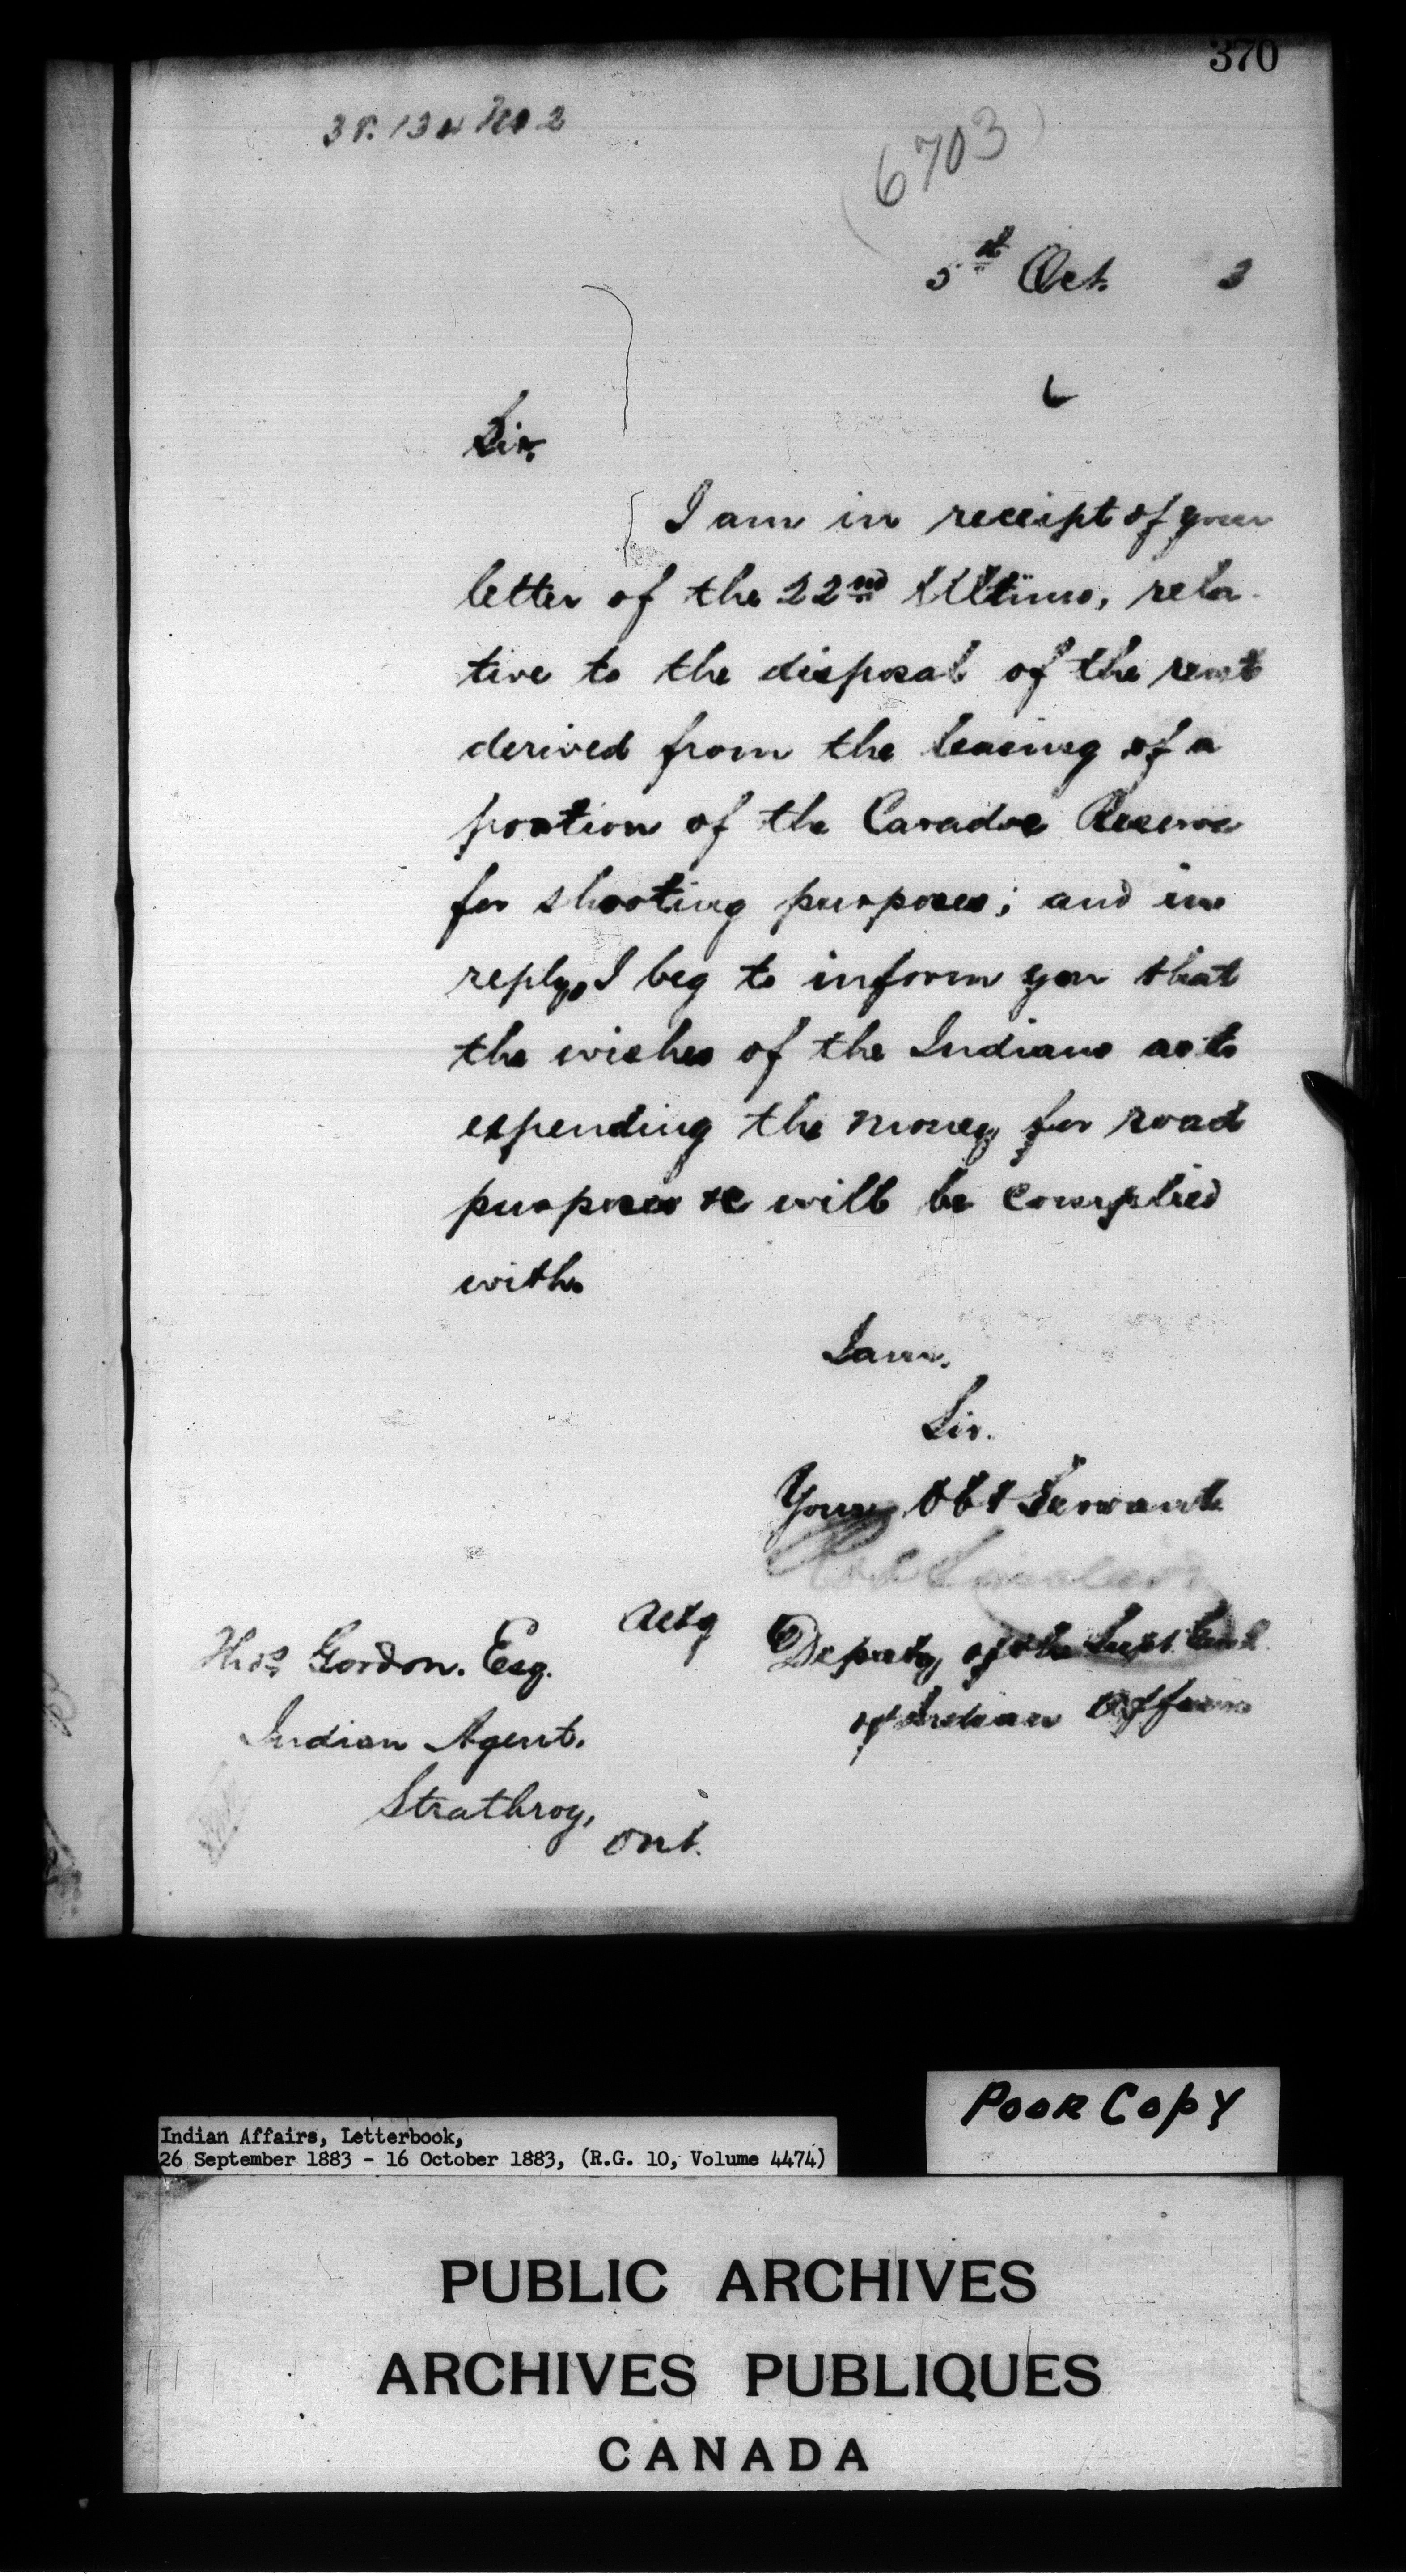 370
6703
5th Oct. 3
Sir,
I am in receipt of your
letter of the 22nd Ultimo, rela-
tive to the disposal of the rent
derived from the leasing of a
portion of the Caradoc Reserve
for shooting purposes; and in
reply, I beg to inform you that
the wishes of the Indians as to
expending the money for road
purposes &c will be complied
with.
I am,
Sir.
Your Obt Servant
Actg Deputy of the Supt. Genl
of Indian Affairs
Thos Gordon. Esq.
Indian Agent.
Strathroy,
Ont.
POOR COPY
Indian Affairs, Letterbook,
26 September 1883 - 16 October 1883, (R.G. 10, Volume 4474)
PUBLIC ARCHIVES
ARCHIVES PUBLIQUES
CANADA